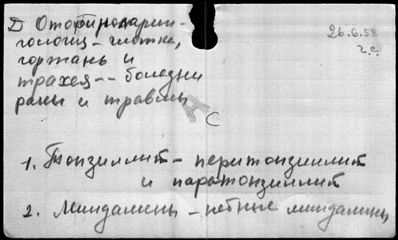 Д Оториноларин-
гология - глотка,
гортань и
трахея -- болезни
раны и травмы
26.6.58
г.с.
С
1. Тонзиллит - перитонзиллит
и паратонзиллит
2. Миндалины - небные миндалины